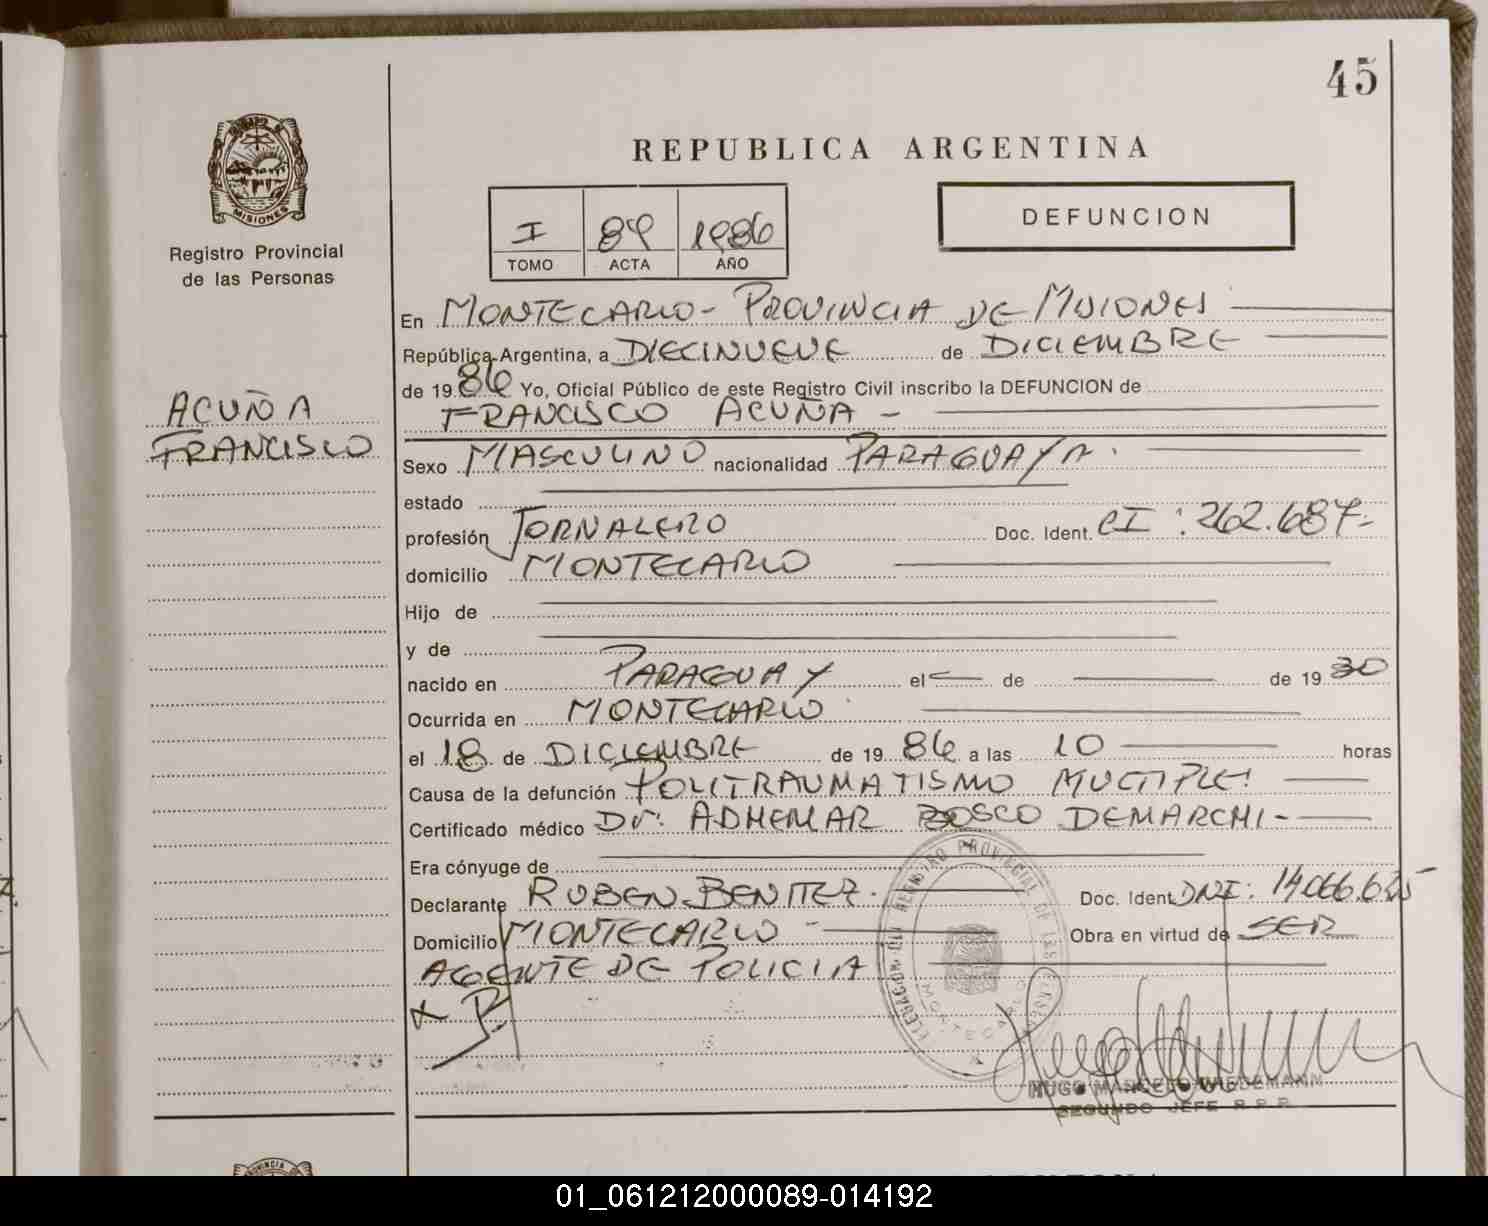 45
REPUBLICA ARGENTINA
MISIONES
Registro Provincial
de las Personas
I 89 1986
TOMO ACTA AÑO
DEFUNCION
ACUÑA
FRANCISCO
En MONTECARLO - PROVINCIA DE MISIONES
República Argentina, a DIECINUEVE de DICIEMBRE
de 1986 Yo, Oficial Público de este Registro Civil inscribo la DEFUNCION de
FRANCISCO ACUÑA -
Sexo MASCULINO nacionalidad PARAGUAYA.
estado
profesión JORNALERO Doc. Ident. CI: 262.687-
domicilio MONTECARLO
Hijo de
y de
nacido en PARAGUAY el de de 1930
Ocurrida en MONTECARLO
el 18 de DICIEMBRE de 1986 a las 10 horas
Causa de la defunción POLITRAUMATISMO MULTIPLE!
Certificado médico Dr. ADHEMAR BOSCO DEMARCHI -
Era cónyuge de
Declarante RUBEN BENITEZ. Doc. Ident DNI: 14.066.635
Domicilio MONTECARLO - Obra en virtud de SER
AGENTE DE POLICIA
REGISTRO PROVINCIAL DE LAS PERSONAS
MONTECARLO
HUGO MARCELO WIEDEMANN
SEGUNDO JEFE R.P.P.
01_061212000089-014192